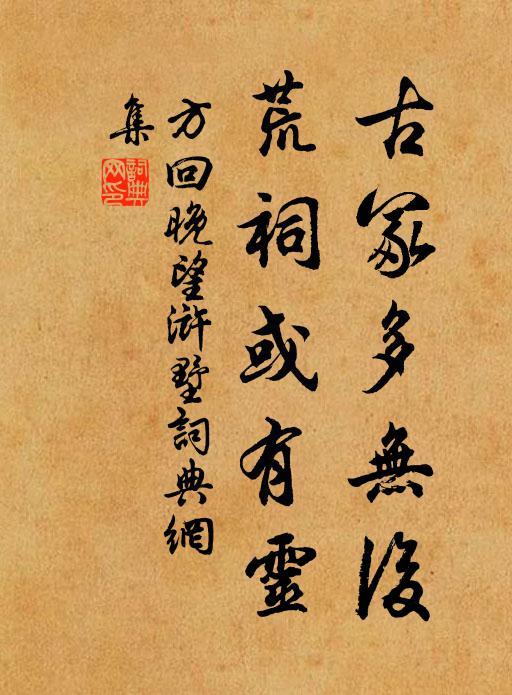 古冢多無後
荒祠或有靈
方回晚望滸墅詞典網
集
詞典
网印